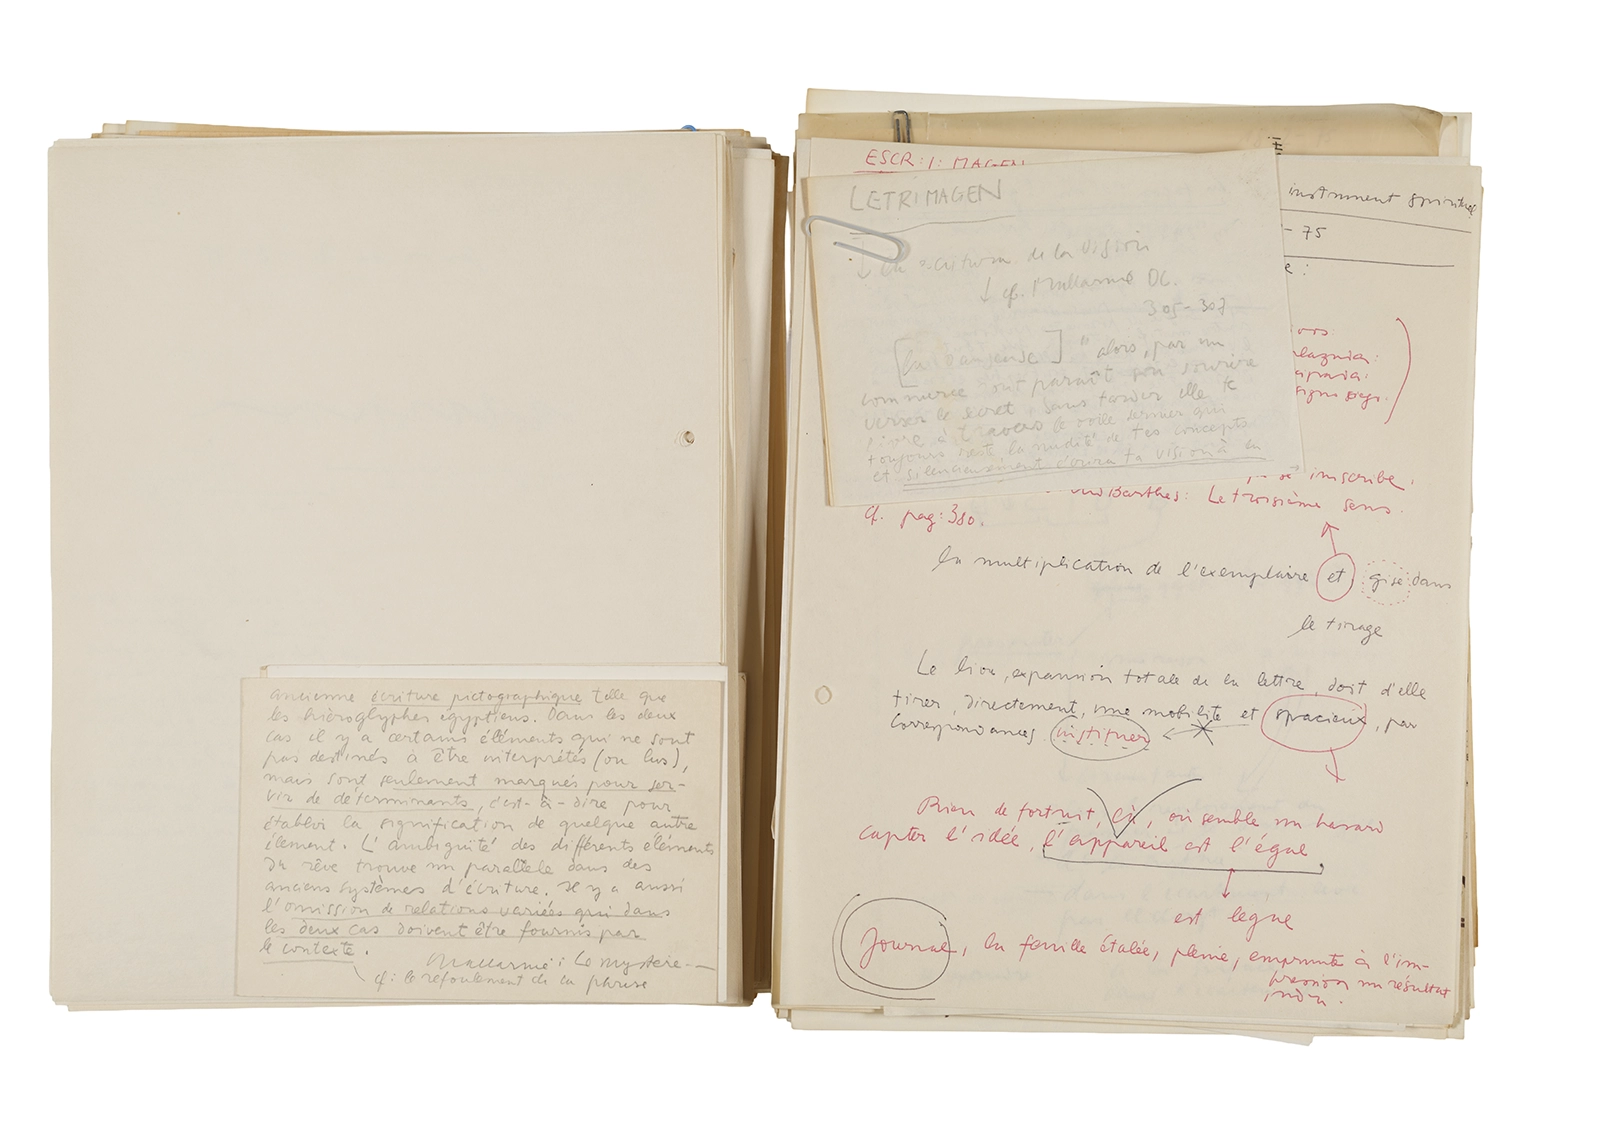 ancienne écriture pictographique telle que
les hiéroglyphes égyptiens. Dans les deux
cas il y a certains éléments qui ne sont
pas destinés à être interprétés (ou lus),
mais sont seulement marqués pour ser-
vir de déterminants, c'est-à-dire pour
établir la signification de quelque autre
élément. L'ambiguité des différents éléments
du rêve trouve un parallèle dans des
anciens systèmes d'écriture. Il y a aussi
l'omission de relations variées qui dans
les deux cas doivent être fournis par
le contexte.
Mallarmé: Le mystère
cf: le refoulement de la phrase
ESCR:I: MAGEN
LETRIMAGEN
escritura de la visión
cf. Mallarmé OC.
305-307
" alors, par un
commerce dont paraît son sourire
verser le secret, sans tarder elle te
livre à travers le voile dernier qui
toujours reste, la nudité de tes concepts
et silencieusement écrira ta vision à
instrument spirituel
- 75
e:
se inscribe.
Barthes: Le troisième sens.
cf. pag: 380.
la multiplication de l'exemplaire et gise dans
le tirage
Le livre, expansion totale de la lettre, doit d'elle
tirer, directement, une mobilité et spacieux, par
correspondances instituer
Rien de fortuit, là, où semble un hasard
capter l'idée, l'appareil est l'égal
est legue
Journal, la feuille étalée, pleine, emprunte à l'im-
pression un résultat
indu.